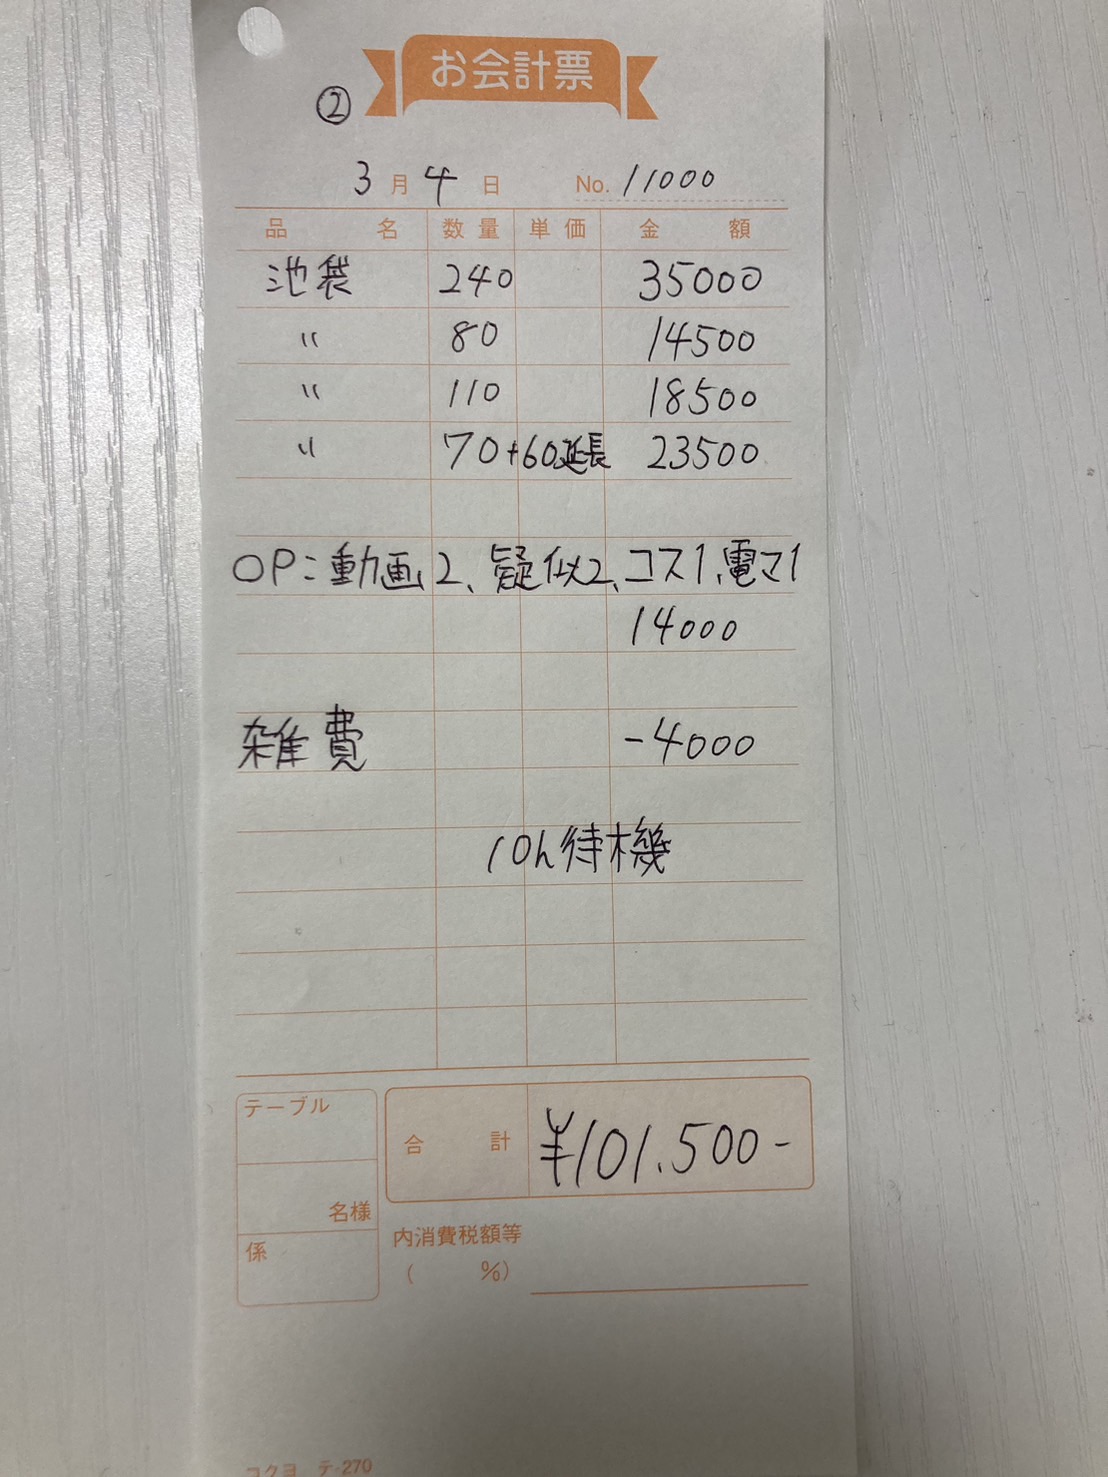 お会計票
②
3月4日 No.11000
品名 数量 単価 金額
池袋 240 35000
〃 80 14500
〃 110 18500
〃 70+60延長 23500
OP:動画2、疑似2、コス1、電マ1
14000
雑費 -4000
10h待機
テーブル
合計 ¥101.500-
名様
係
内消費税額等
( %)
コクヨ テ-270